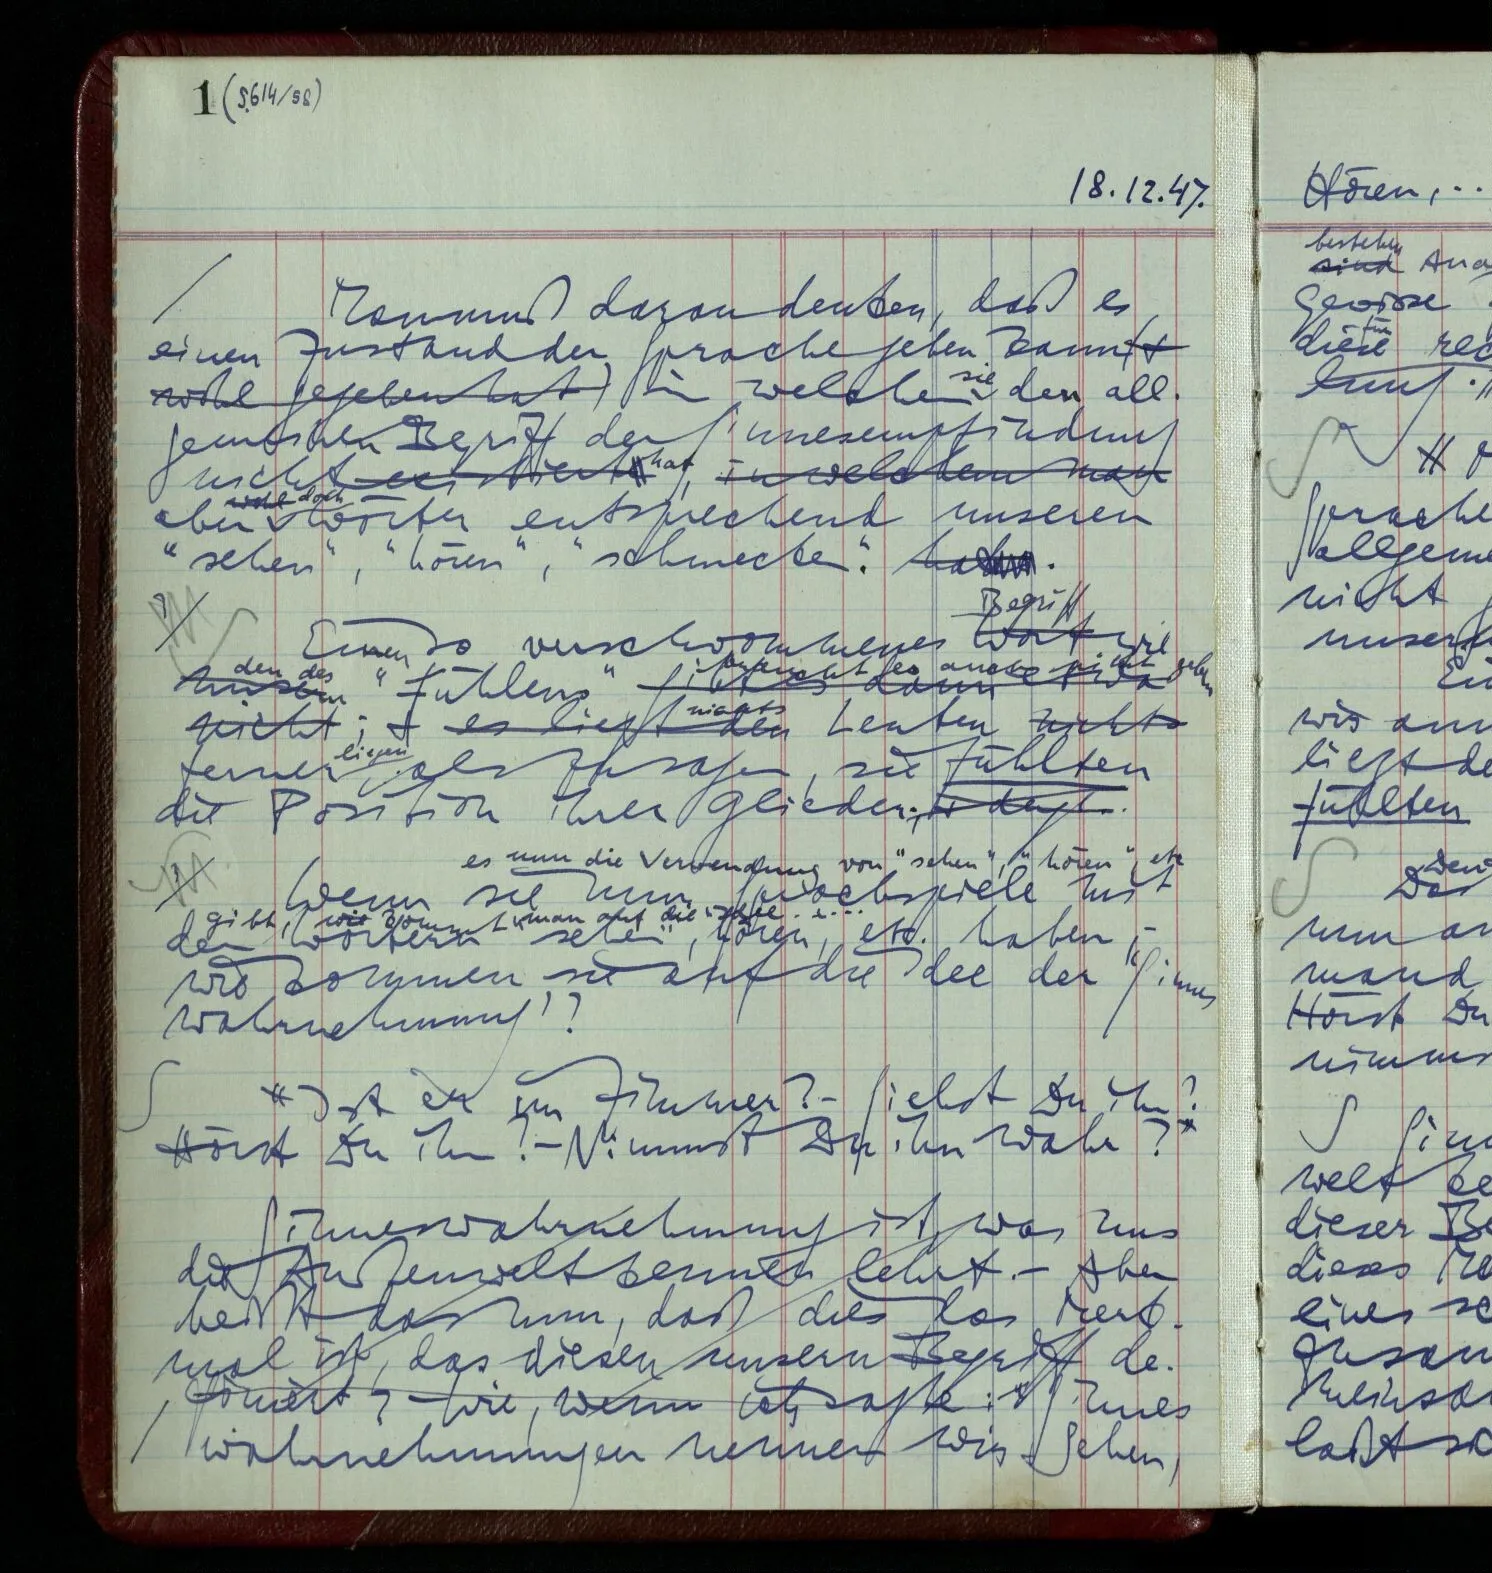 1 (S.614/58)
18.12.47.
/ Man muß daran denken, daß es
einen Zustand der Sprache geben kann (&
wohl gegeben hat) in welchem sie den all-
gemeinen Begriff der Sinnesempfindung
nicht existiert hat, in welchem man
aber wohl doch Wörter entsprechend unseren
"sehen", "hören", "schmecken".
?/ Einen so verschwommenes Wort Begriff wie
unsern den des "Fühlens" gibt es dann etwa braucht es auch nicht geben
nicht; & es liegt den nichts Leuten nichts
ferner liegen als zu sagen, sie fühlten
die Position ihrer Glieder;
es nun die Verwendung von "sehen", "hören", etc
/ Wenn sie nun Sprachspiele mit
gibt, wie kommt man auf die Idee....
den Wörtern "sehen", hören, etc. haben, –
wie kommen sie auf die Idee der 'Sinnes
wahrnehmung'?
∫ "Ist er im Zimmer? – Siehst Du ihn?
Hörst Du ihn? – Nimmst Du ihn wahr?"
Sinneswahrnehmung ist, was uns
die Außenwelt kennen lehrt. – Aber
heißt das nun, daß dies das Merk-
mal ist, das diesen unsern Begriff de-
finiert? Wie, wenn ich sagte: "Sinnes
/ wahrnehmungen nennen wir Sehen,
Hören,...
bestehen
sind
gewisse
für
diese
nicht
unser
wir
liegt de
fühlten
Das
nun
Hörst Du
∫
welt
dieser Be
dieses
eines
läßt